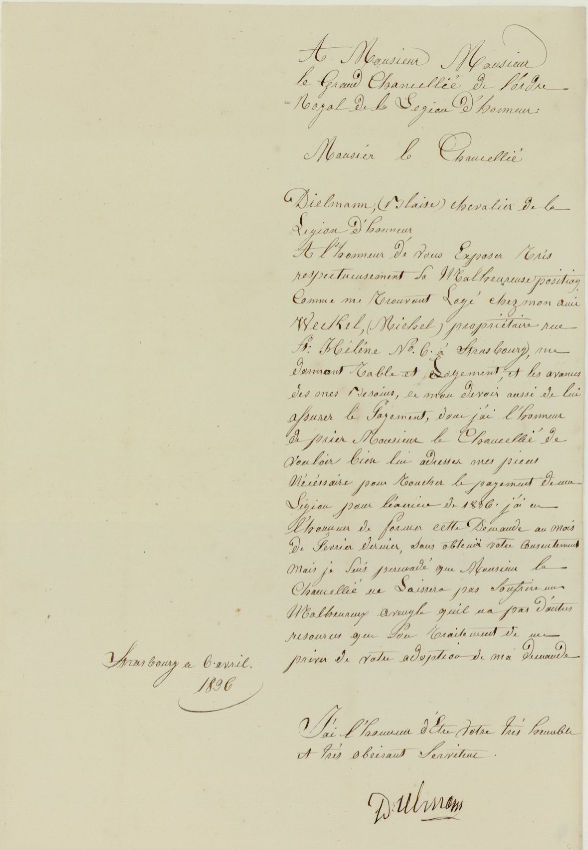 A Monsieur Monsieur
le Grand Chancellié de l'ordre
Royal de la Legion d'honneur.
Monsier le Chancellié
Dielmann, (Blaise) chevalier de la
Legion d'honneur
A l'honneur de vous Exposer Très
respectueusement sa Malheureuse position,
Comme me Trouvant Logé chez mon ami
Weckel, (Michel) propriétaire rue
Ste Hélène No. 6. à Strasbourg, me
donnant Table et Logement, et les avances
des mes Besoins, de mon devoir aussi de lui
assurer le Payement, donc j'ai l'honneur
de prier Monsieur le Chancellié de
vouloir bien lui adresser mes pieces
Nécéssaire pour Toucher le payement de ma
Légion pour l'année de 1836. j'ai eu
l'honneur de former cette Demande au mois
de Fevrier dernier, sans obtenir votre consentement
mais je suis persuadé que Monsieur le
Chancellié ne Laissera pas Souffrir un
Malheureux aveugle qu'il na pas d'autres
resources que Son Traitement de me
priver de votre adoption de ma demande
Strasbourg a 6 avril.
1836
J'ai l'honneur d'Être votre très humble
et très obeisant Serviteur.
Dielmann